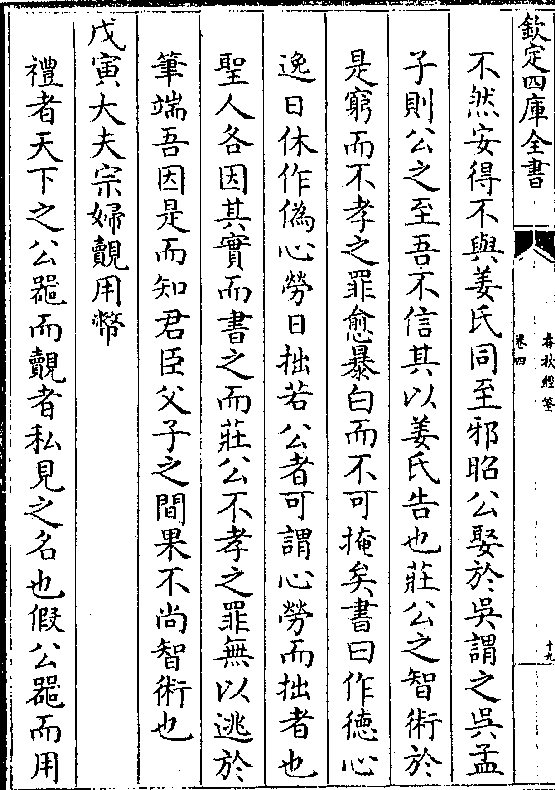 欽定四庫全書
春秋經筌
卷四
十九
不然安得不與姜氏同至邪昭公娶於吳謂之吳孟
子則公之至吾不信其以姜氏告也莊公之智術於
是窮而不孝之罪愈暴白而不可掩矣書曰作德心
逸日休作偽心勞日拙若公者可謂心勞而拙者也
聖人各因其實而書之而莊公不孝之罪無以逃於
筆端吾因是而知君臣父子之間果不尚智術也
戊寅大夫宗婦覿用幣
禮者天下之公器而覿者私見之名也假公器而用